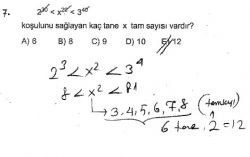 7. 2³⁰ < x²⁰ < 3⁴⁰
koşulunu sağlayan kaç tane x tam sayısı vardır?
A) 6 B) 8 C) 9 D) 10 E) 12
2³ < x² < 3⁴
8 < x² < 81
→ 3, 4, 5, 6, 7, 8 (tamkyı)
6 tane, 2 = 12